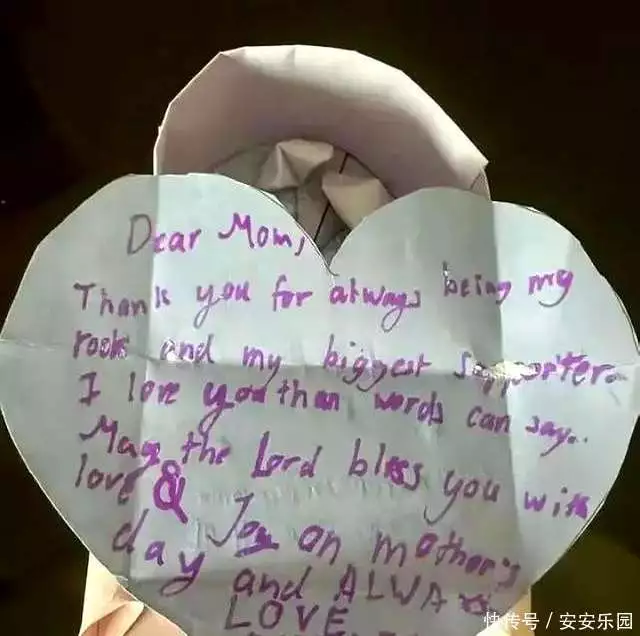 Dear Mom,
Thank you for always being my
rock and my biggest supporter.
I love you than words can say..
May the Lord bless you with
love & Joy on mother's
day
and ALWAYS
LOVE
快传号 / 安安乐园